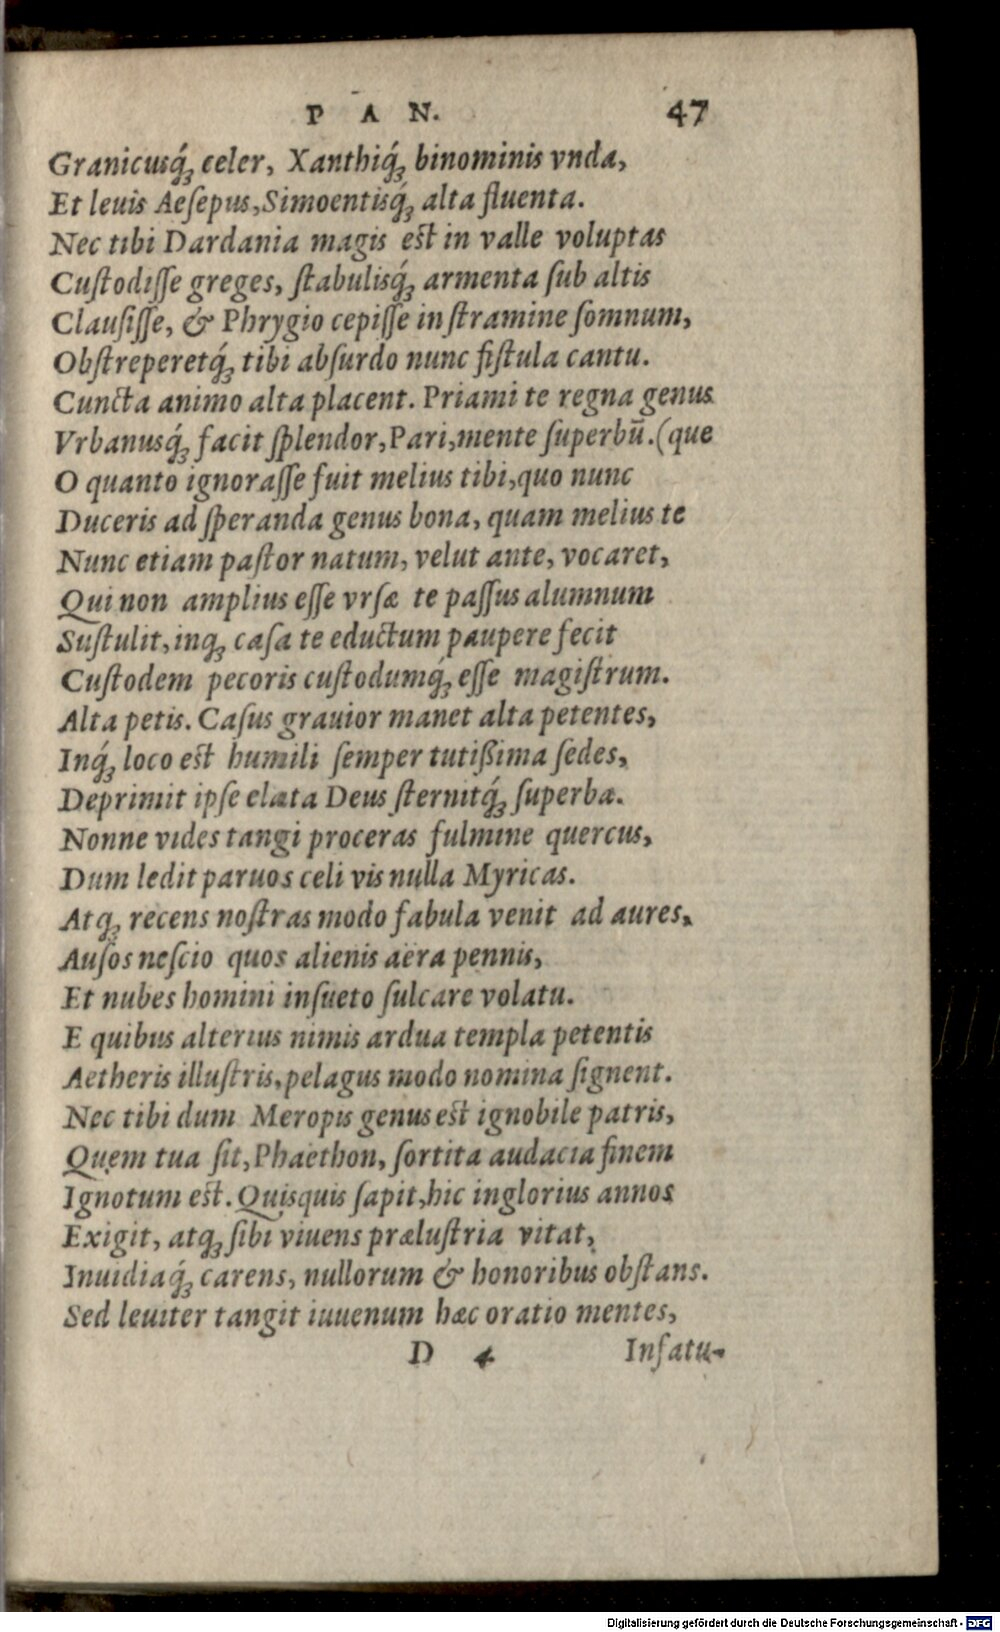 P A N. 47
Granicusq́ꝫ celer, Xanthiq́ꝫ binominis vnda,
Et leuis Aeſepus, Simoentisq́ꝫ alta fluenta.
Nec tibi Dardania magis eſt in valle voluptas
Cuſtodiſſe greges, ſtabulisq́ꝫ armenta ſub altis
Clauſiſſe, & Phrygio cepiſſe in ſtramine ſomnum,
Obſtreperetq́ꝫ tibi abſurdo nunc fiſtula cantu.
Cuncta animo alta placent. Priami te regna genus
Vrbanusq́ꝫ facit ſplendor, Pari, mente ſuperbū. (que
O quanto ignoraſſe fuit melius tibi, quo nunc
Duceris ad ſperanda genus bona, quam melius te
Nunc etiam paſtor natum, velut ante, vocaret,
Qui non amplius eſſe vrſæ te paſſus alumnum
Suſtulit, inqꝫ caſa te eductum paupere fecit
Cuſtodem pecoris cuſtodumq́ꝫ eſſe magiſtrum.
Alta petis. Caſus grauior manet alta petentes,
Inq́ꝫ loco eſt humili ſemper tutißima ſedes,
Deprimit ipſe elata Deus ſternitq́ꝫ ſuperba.
Nonne vides tangi proceras fulmine quercus,
Dum ledit paruos celi vis nulla Myricas.
Atqꝫ recens noſtras modo fabula venit ad aures,
Auſos neſcio quos alienis aëra pennis,
Et nubes homini inſueto ſulcare volatu.
E quibus alterius nimis ardua templa petentis
Aetheris illuſtris, pelagus modo nomina ſignent.
Nec tibi dum Meropis genus eſt ignobile patris,
Quem tua ſit, Phaëthon, ſortita audacia finem
Ignotum eſt. Quisquis ſapit, hic inglorius annos
Exigit, atqꝫ ſibi viuens præluſtria vitat,
Inuidiaq́ꝫ carens, nullorum & honoribus obſtans.
Sed leuiter tangit iuuenum hæc oratio mentes,
D 4 Inſatu-
Digitalisierung gefördert durch die Deutsche Forschungsgemeinschaft - DFG